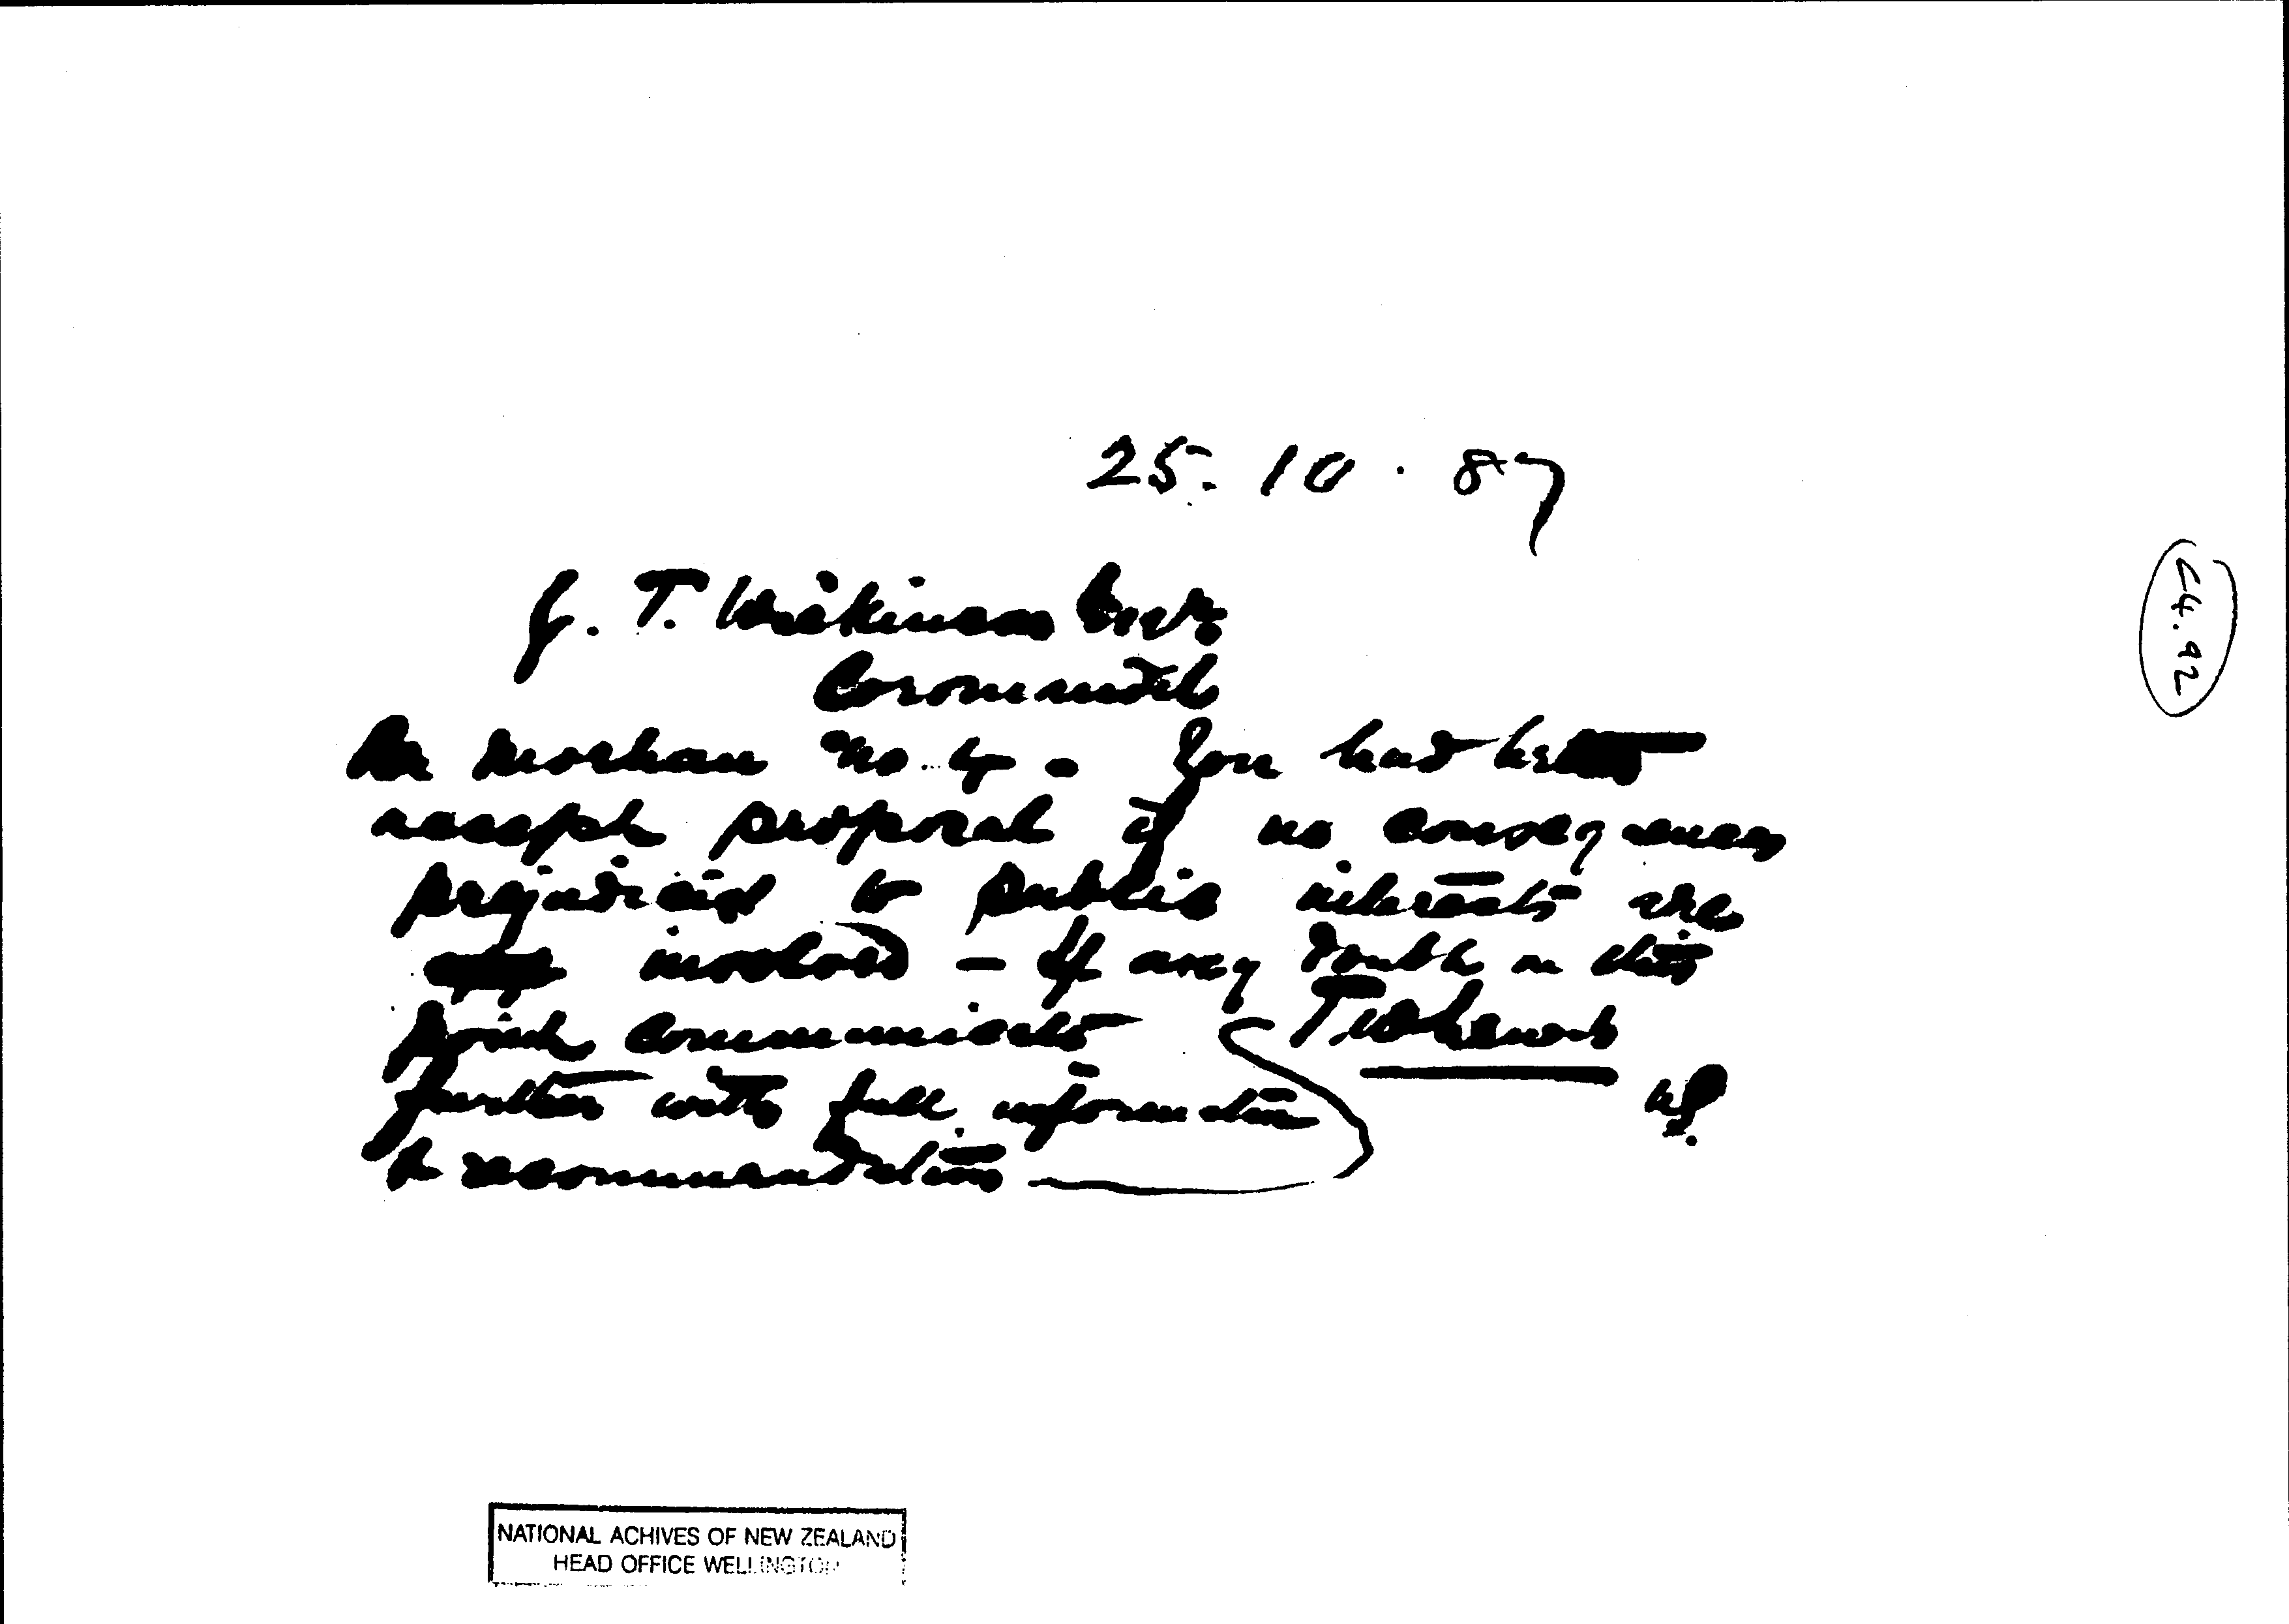 25. 10. 87
G. T. Wilkinson Esq
Coromandel
Re Moehau No. 4 - You had better
accept proposal if no consequences
prejudicial to public interests are
involved - If any doubt on this
point communicate T W Lewis
further with full information
& recommendation
C4.92
NATIONAL ACHIVES OF NEW ZEALAND
HEAD OFFICE WELLINGTON